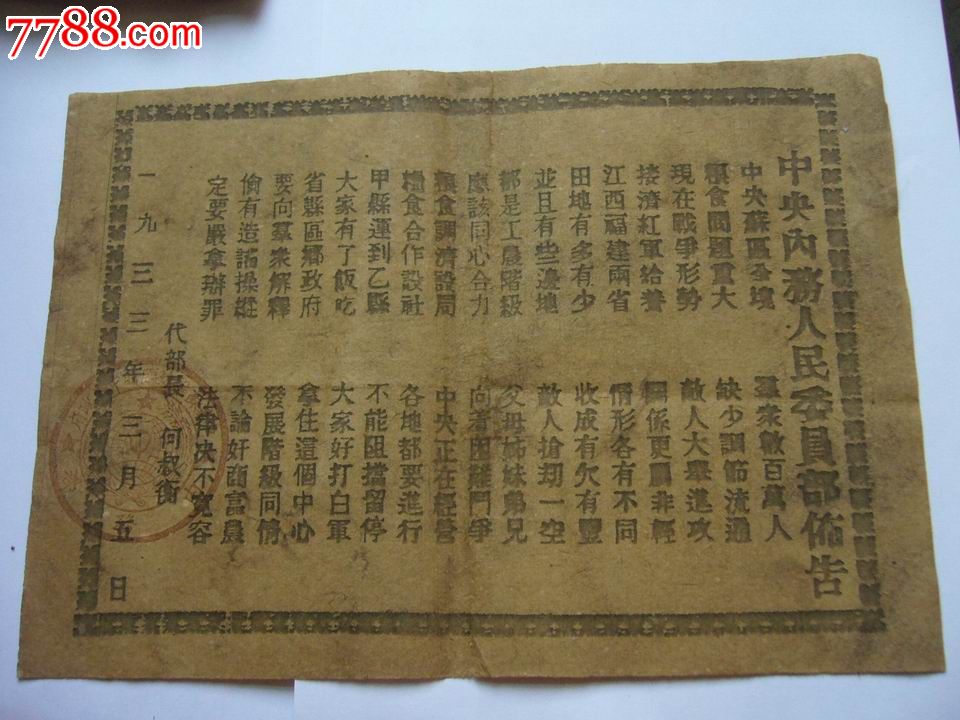 7788.com
中央內務人民委員部佈告
中央蘇區各境 羣衆數百萬人
糧食問題重大 缺少調節流通
現在戰爭形勢 敵人大舉進攻
接濟紅軍給養 關係更屬非輕
江西福建兩省 情形各有不同
田地有多有少 收成有欠有豐
並且有些邊地 敵人搶刼一空
都是工農階級 父母姊妹弟兄
應該同心合力 向着困難鬥爭
糧食調濟設局 中央正在經營
糧食合作設社 各地都要進行
甲縣運到乙縣 不能阻擋留停
大家有了飯吃 大家好打白軍
省縣區鄉政府 拿住這個中心
要向羣衆解釋 發展階級同情
倘有造謠操縱 不論奸商富農
定要嚴拿辦罪 法律決不寬容
代部長 何叔衡
一九三三年三月五日